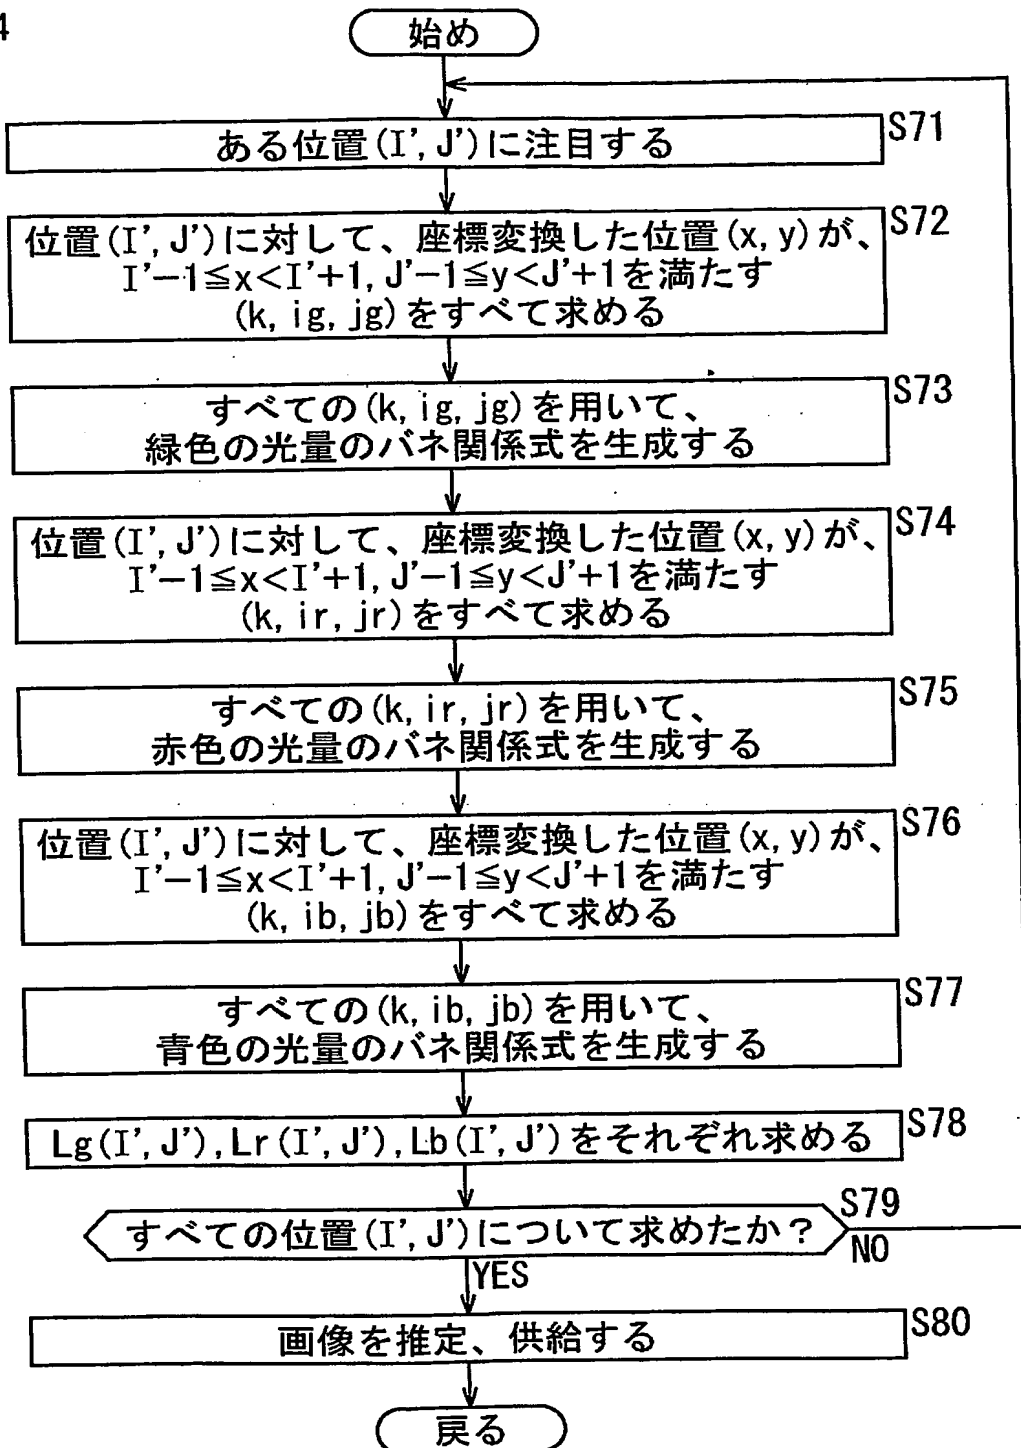 4
始め
ある位置(I',J')に注目する
S71
位置(I',J')に対して、座標変換した位置(x,y)が、
S72
I'−1≦x<I'+1,J'−1≦y<J'+1を満たす
(k,ig,jg)をすべて求める
すべての(k,ig,jg)を用いて、
S73
緑色の光量のバネ関係式を生成する
位置(I',J')に対して、座標変換した位置(x,y)が、
S74
I'−1≦x<I'+1,J'−1≦y<J'+1を満たす
(k,ir,jr)をすべて求める
すべての(k,ir,jr)を用いて、
S75
赤色の光量のバネ関係式を生成する
位置(I',J')に対して、座標変換した位置(x,y)が、
S76
I'−1≦x<I'+1,J'−1≦y<J'+1を満たす
(k,ib,jb)をすべて求める
すべての(k,ib,jb)を用いて、
S77
青色の光量のバネ関係式を生成する
Lg(I',J'),Lr(I',J'),Lb(I',J')をそれぞれ求める
S78
すべての位置(I',J')について求めたか？
S79
NO
YES
画像を推定、供給する
S80
戻る